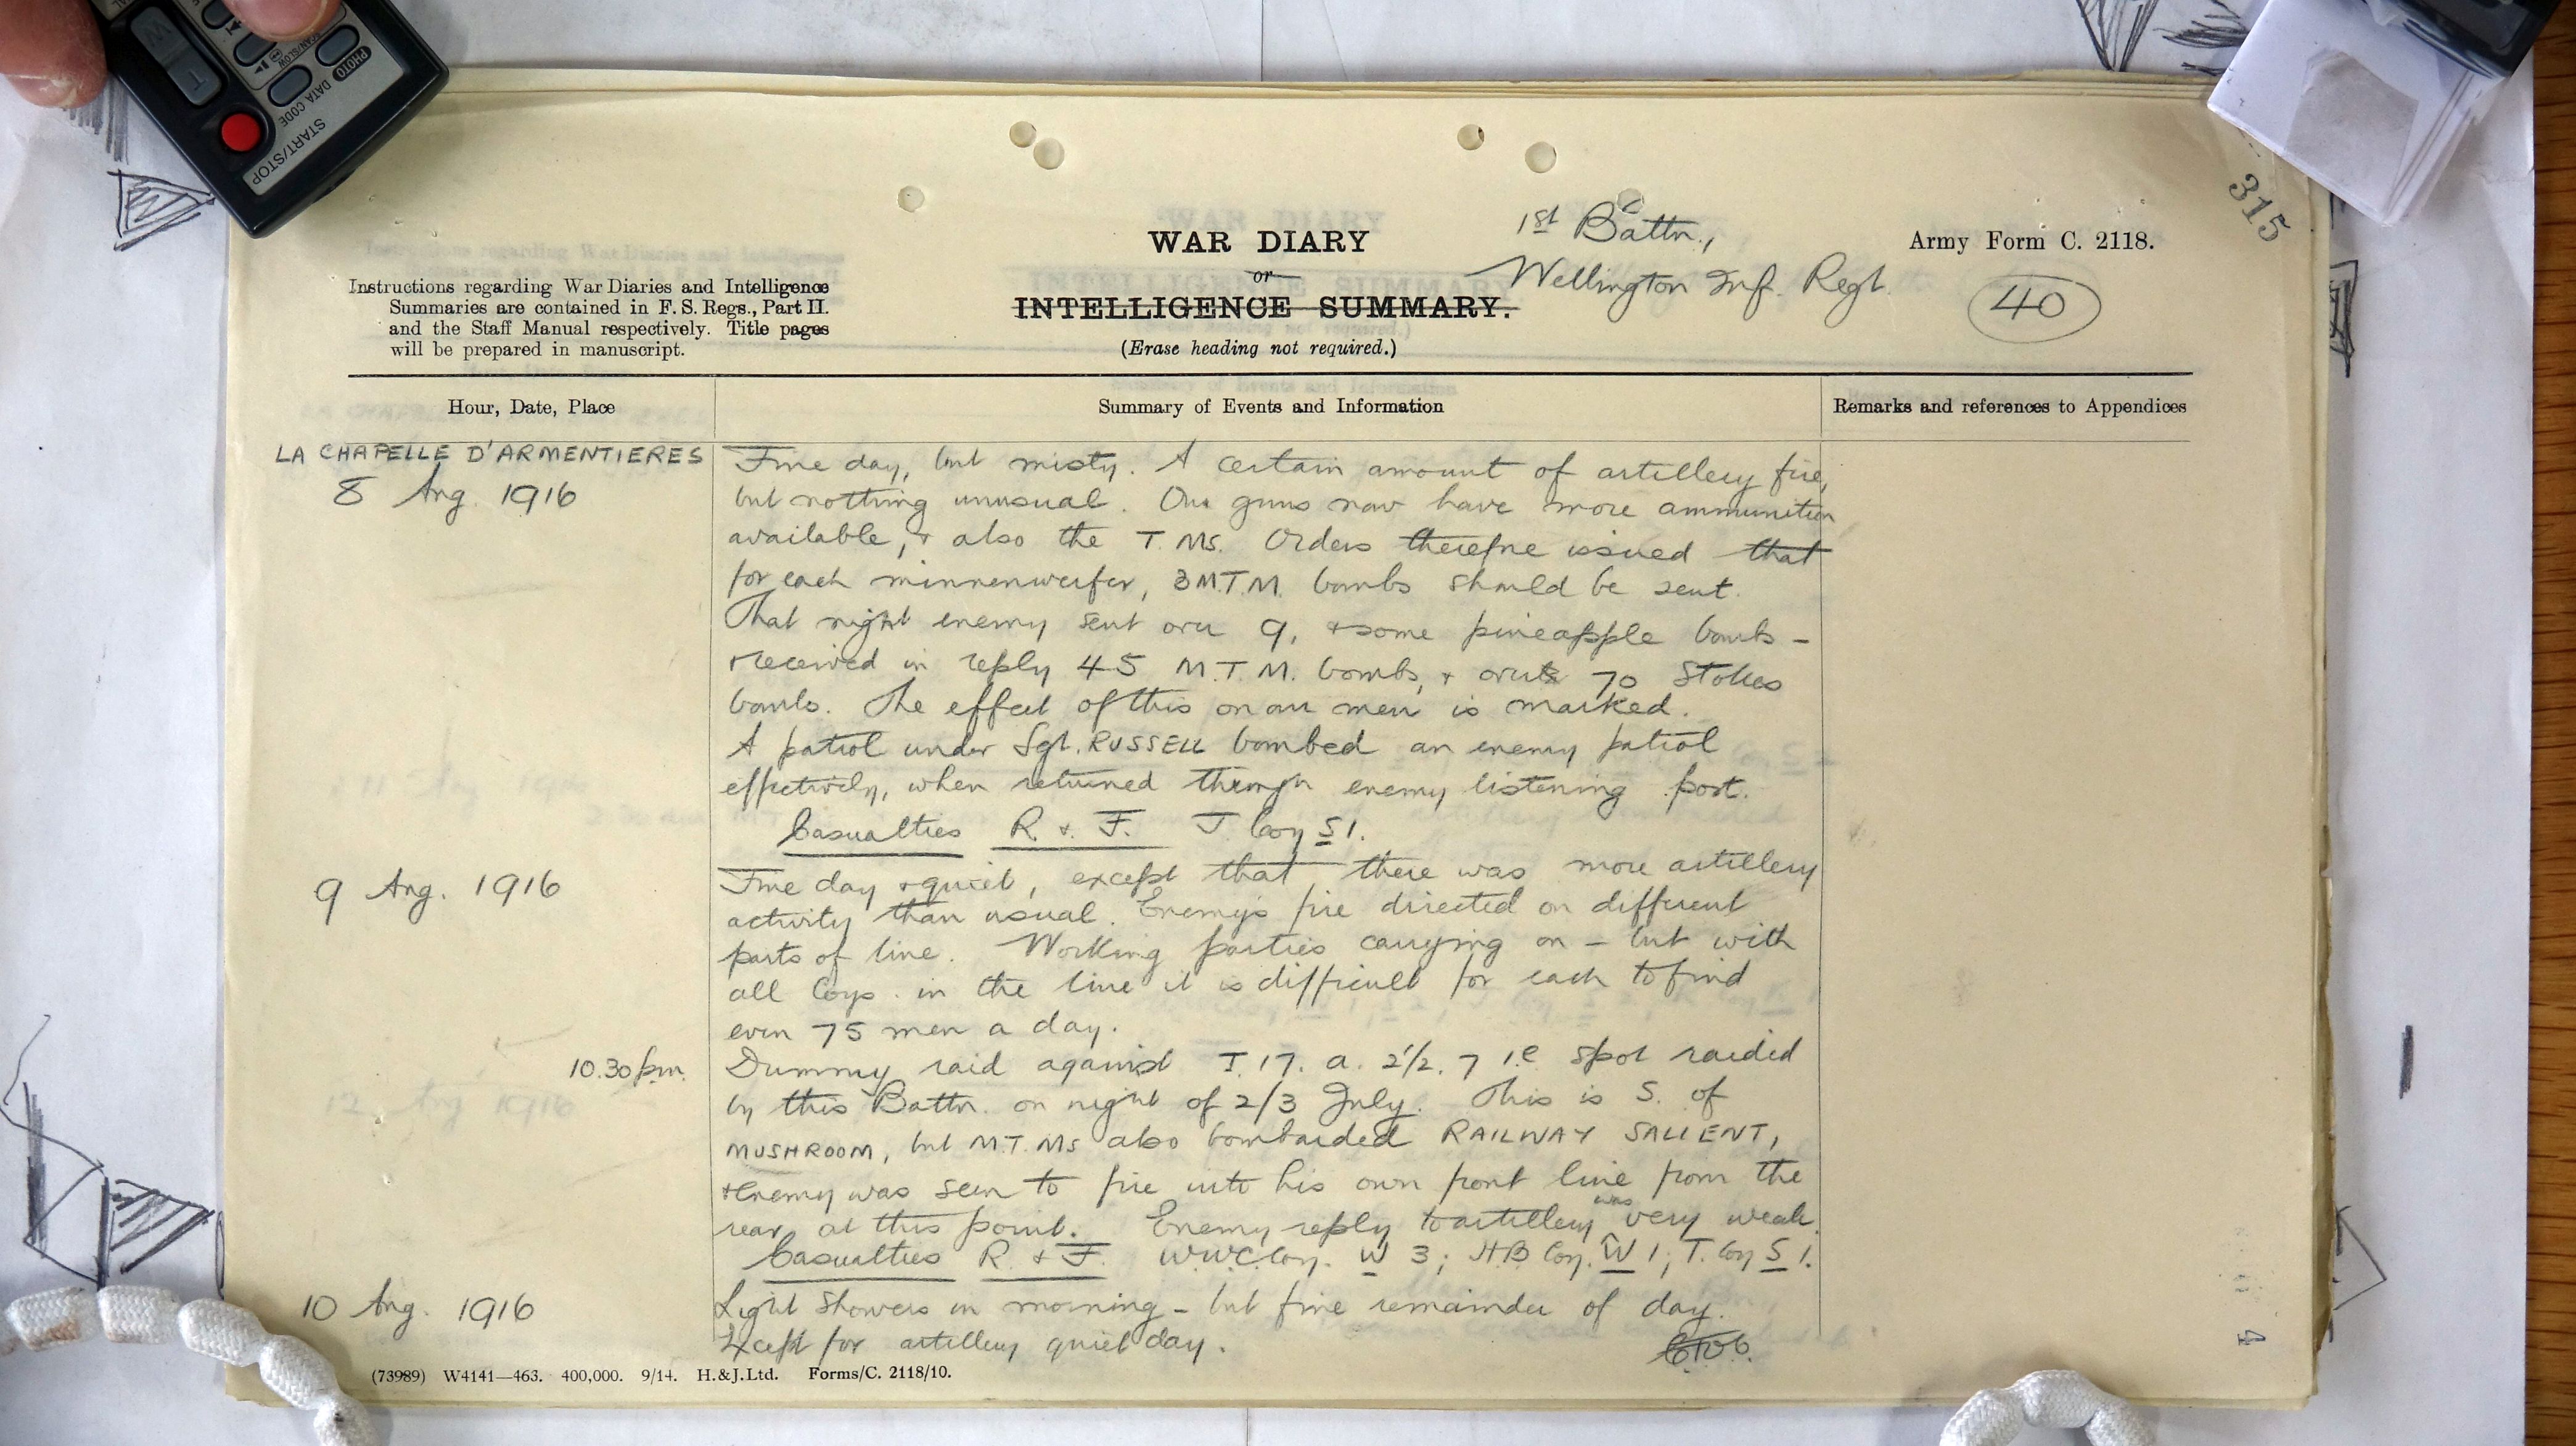 PHOTO
DATA CODE
START/STOP
315
1st Battn.,
Wellington Inf. Regt.
WAR DIARY
or
INTELLIGENCE SUMMARY.
(Erase heading not required.)
Army Form C. 2118.
40
Instructions regarding War Diaries and Intelligence
Summaries are contained in F. S. Regs., Part II.
and the Staff Manual respectively. Title pages
will be prepared in manuscript.
Hour, Date, Place
Summary of Events and Information
Remarks and references to Appendices
LA CHAPELLE D'ARMENTIERES
8 Aug. 1916
Fine day, but misty. A certain amount of artillery fire,
but nothing unusual. Our guns now have more ammunition
available, & also the T.Ms. Orders therefore issued that
for each minnenwerfer, 3 M.T.M. bombs should be sent.
That night enemy sent over 9, & some pineapple bombs -
& received in reply 45 M.T.M. bombs, & over 70 Stokes
bombs. The effect of this on our men is marked.
A patrol under Sgt. RUSSELL bombed an enemy patrol
effectively, when returned through enemy listening post.
Casualties R. & F. T Coy S 1.
9 Aug. 1916
Fine day & quiet, except that there was more artillery
activity than usual. Enemy's fire directed on different
parts of line. Working parties carrying on - but with
all Coys. in the line it is difficult for each to find
even 75 men a day.
10.30 p.m.
Dummy raid against I. 17. a. 2½. 7 i.e. spot raided
by this Battn. on night of 2/3 July. This is S. of
MUSHROOM, but M.T.Ms also bombarded RAILWAY SALIENT,
& Enemy was seen to fire into his own front line from the
rear at this point. Enemy reply to artillery was very weak.
Casualties R. & F. W.W.C. Coy. W 3; H.B Coy. W 1; T. Coy S 1.
10 Aug. 1916
Light showers in morning - but fine remainder of day.
Except for artillery quiet day.
(73989) W4141—463. 400,000. 9/14. H. & J. Ltd. Forms/C. 2118/10.